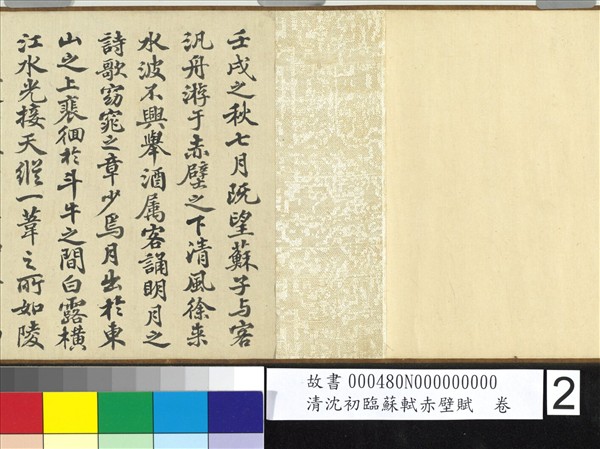 壬戌之秋七月既望蘇子与客
汎舟游于赤壁之下清風徐来
水波不興舉酒属客誦明月之
詩歌窈窕之章少焉月出於東
山之上裵佪於斗牛之間白露横
江水光接天縦一葦之所如陵
故書 000480N000000000
清沈初臨蘇軾赤壁賦 卷
2